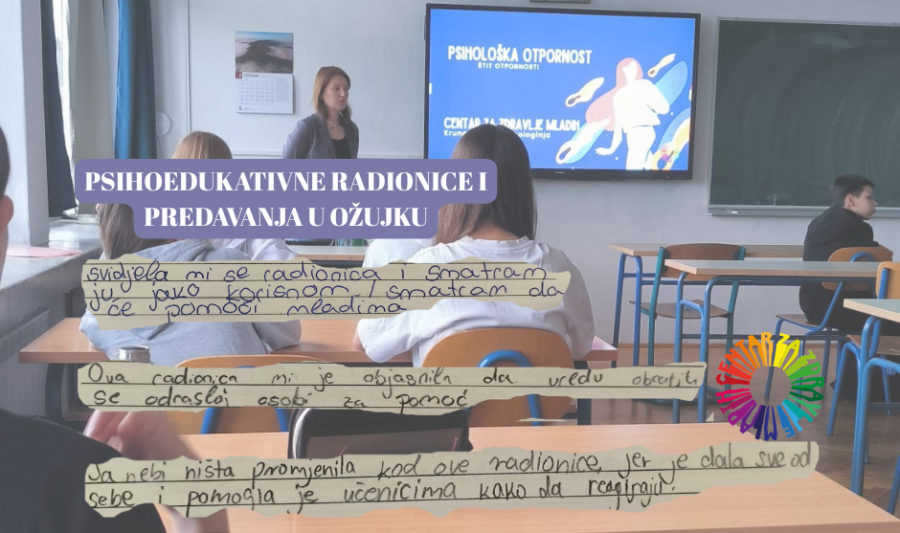 PSIHOLOŠKA OTPORNOST
ŠTIT OTPORNOSTI
CENTAR ZA ZDRAVLJE MLADIH
PSIHOEDUKATIVNE RADIONICE I
PREDAVANJA U OŽUJKU
svidjela mi se radionica i smatram
ju jako korisnom / smatram da
će pomoći mladima
Ova radionica mi je objasnila da uredu obratiti
se odrasloj osobi za pomoć
Ja nebi ništa promjenila kod ove radionice, jer je dala sve od
sebe i pomogla je učenicima kako da reagiraju.
CENTAR ZA ZDRAVLJE MLADIH